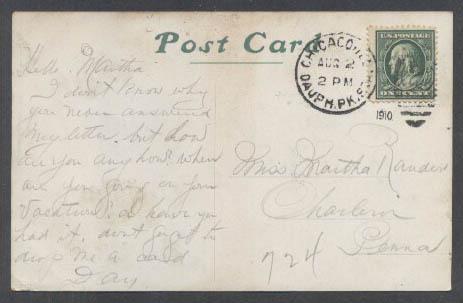 Post Card
CHICAGO, ILL.
AUG 2
2 PM
DAUPH. PK. STA.
1910
U.S. POSTAGE
ONE CENT
Hello Martha
I don't know why
you never answered
my letter. but how
are you any how? when
are you going on your
vacation? or have you
had it. don't forget to
drop me a card
Day
Miss Martha
Charleroi
Penna
724